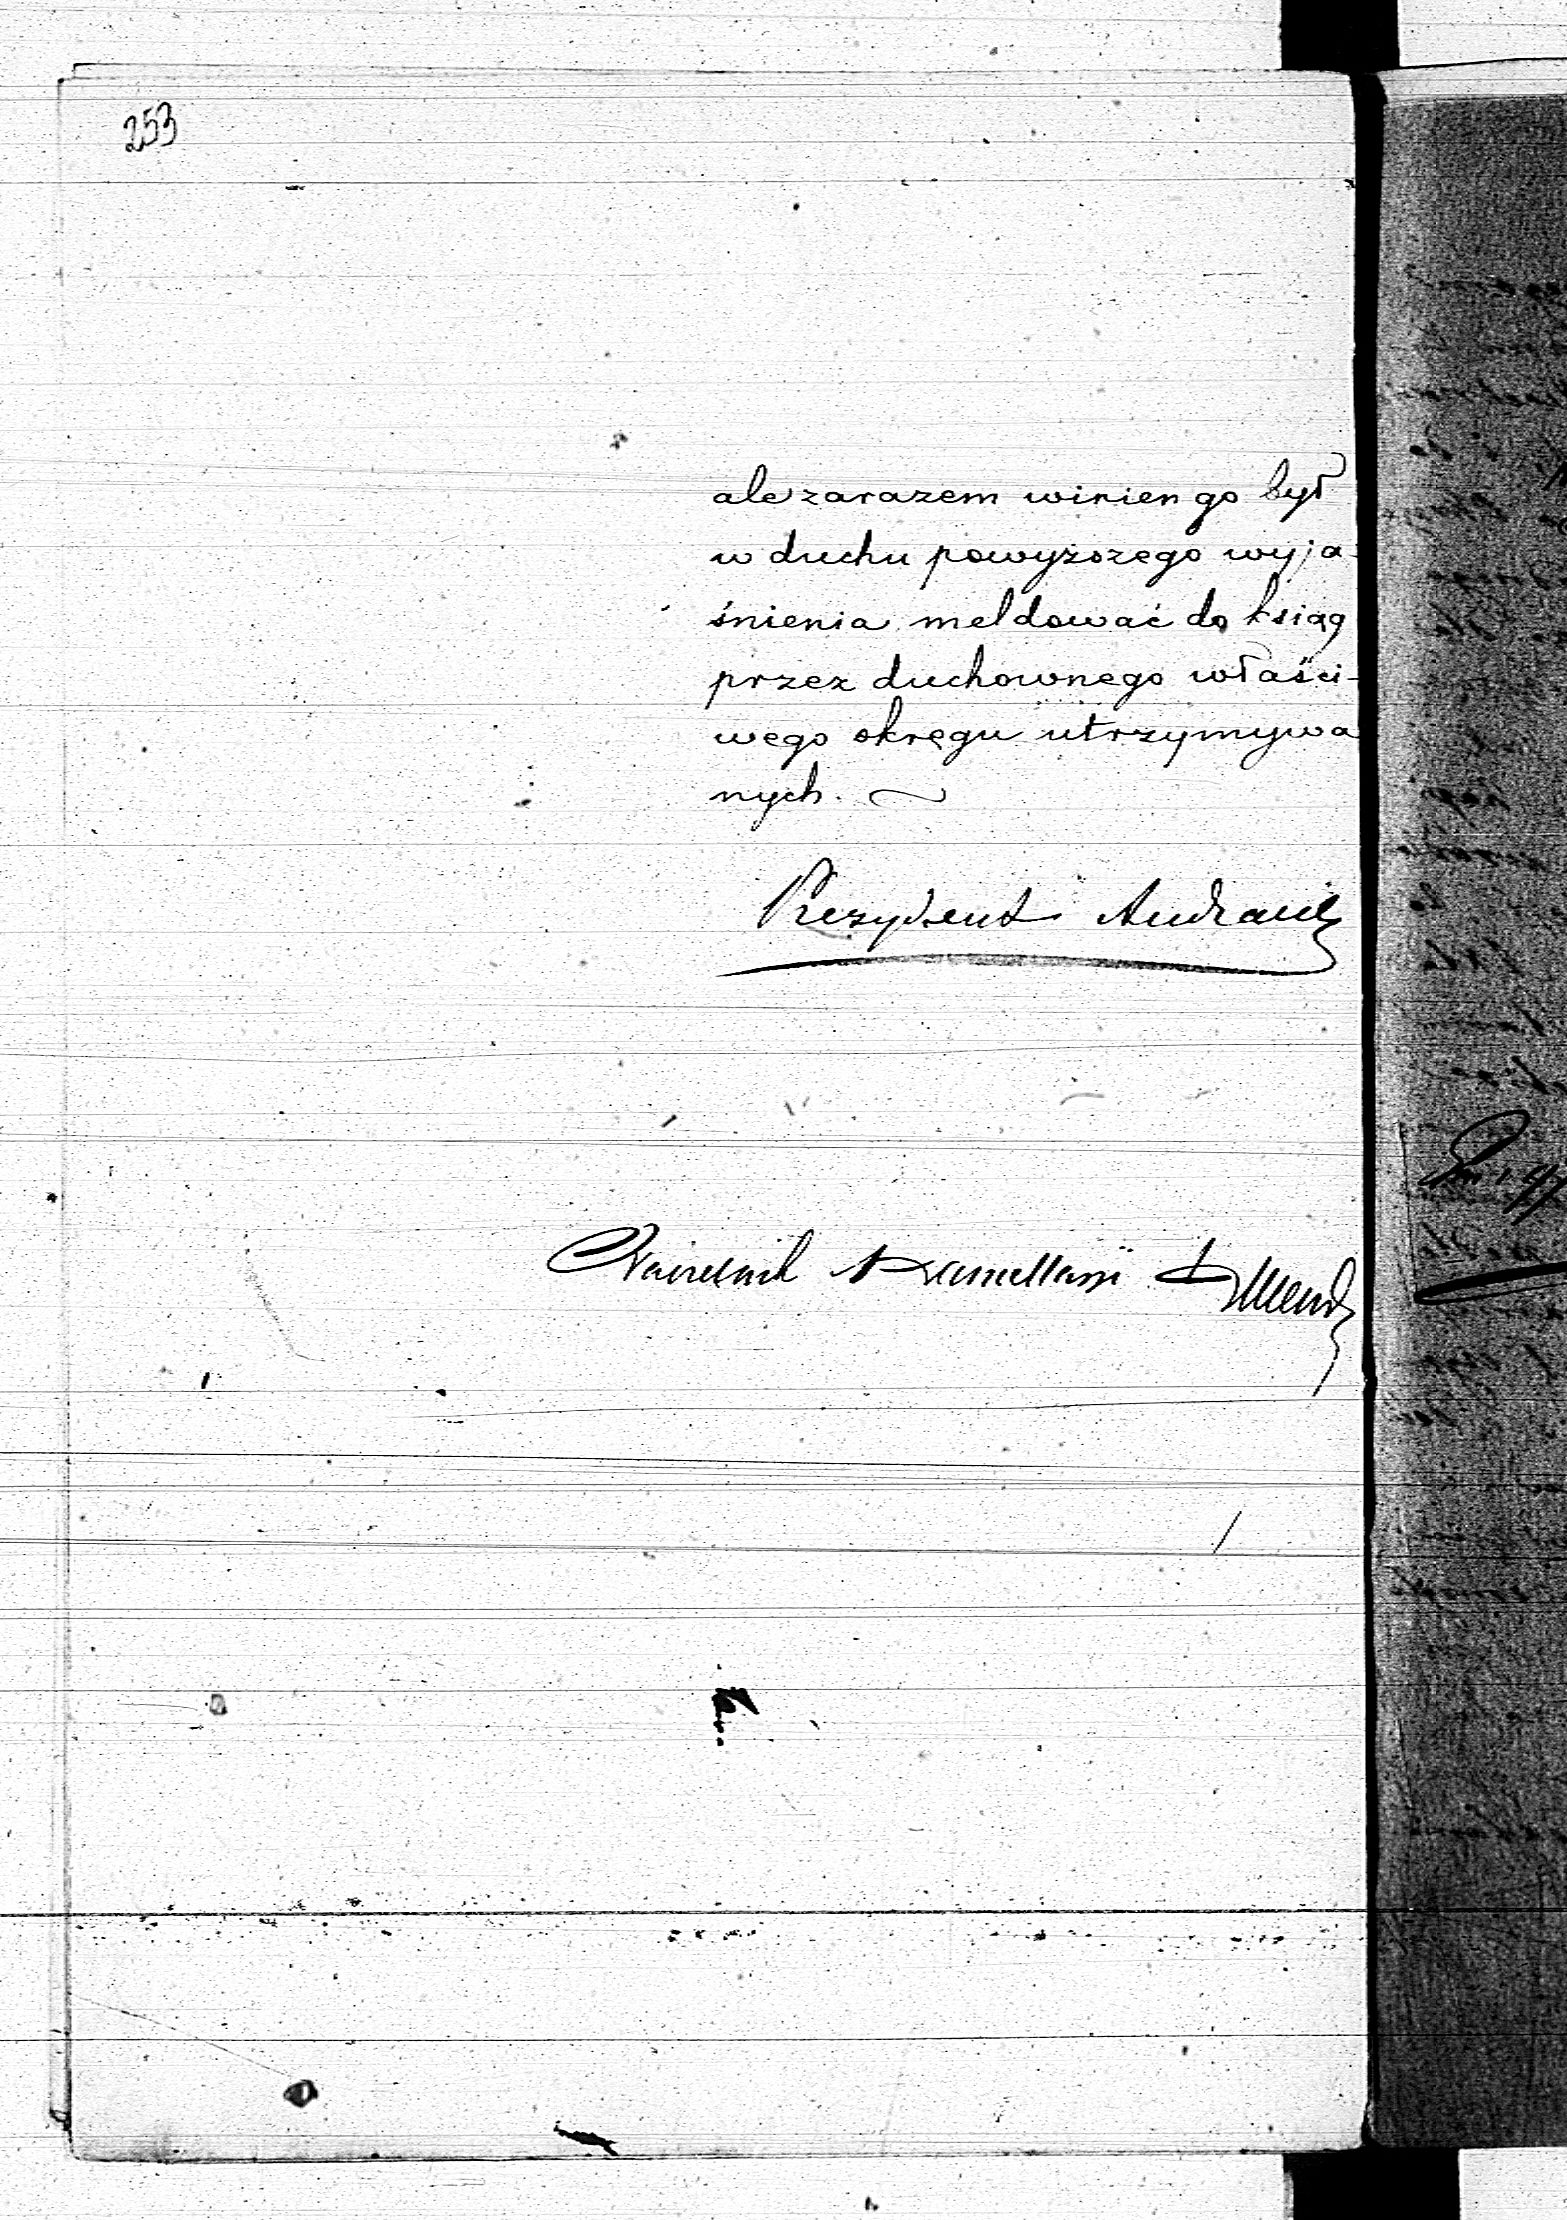 253
ale zarazem winien go był
w duchu powyższego wyja-
śnienia meldować do ksiąg
przez duchownego właści-
wego okręgu utrzymywa
nych.
Prezydent Andrault
Naczelnik Kancellarji